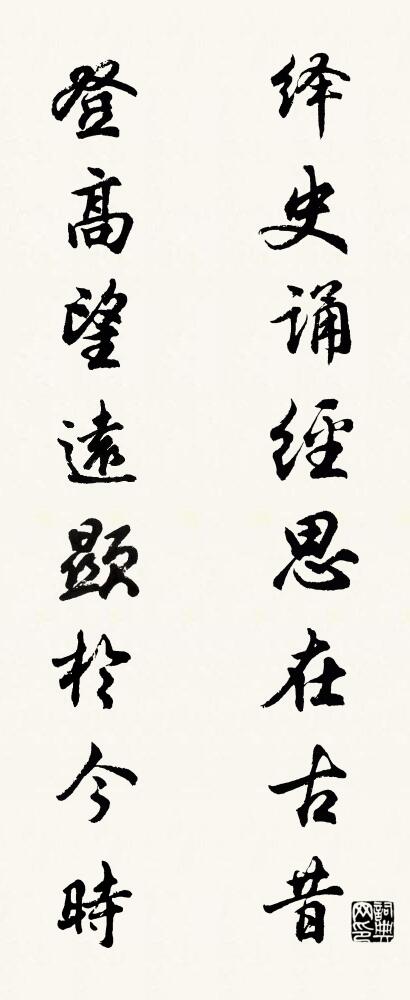 绎史诵經思在古昔
登高望遠顯於今時
詞典网印